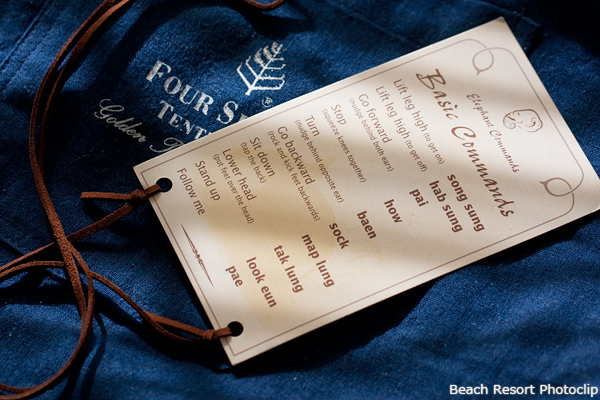 FOUR SE
TENT
Golden T
®
Elephant Commands
Basic Commands
Lift leg high (to get on) song sung
Lift leg high (to get off) hab sung
Go forward pai
(nudge behind both ears)
Stop how
(squeeze knees together)
Turn baen
(nudge behind opposite ear)
Go backward sock
(rock and kick feet backwards)
Sit down map lung
(tap the back)
Lower head tak lung
(put feet over the head)
Stand up look eun
Follow me pae
Beach Resort Photoclip